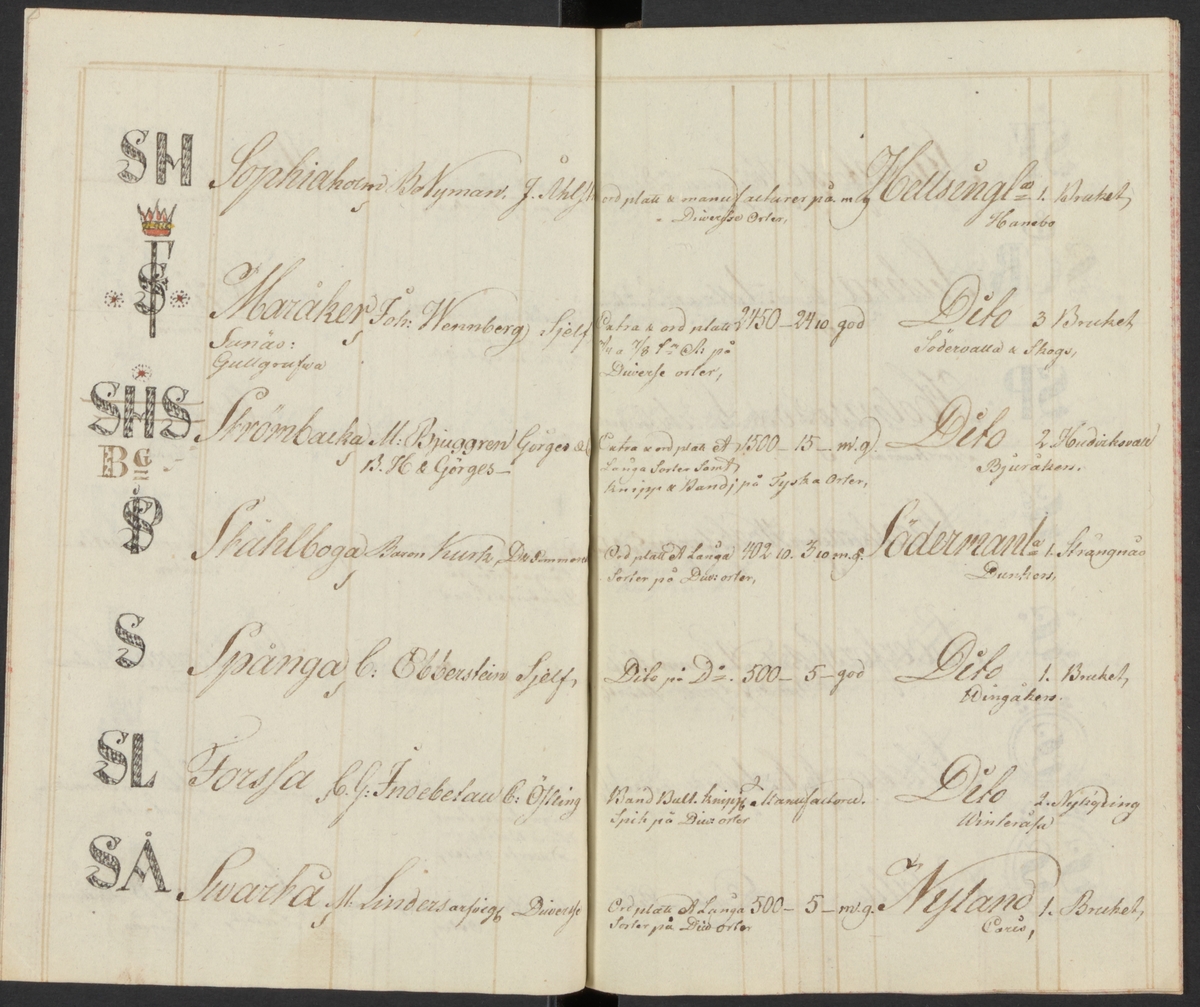 SH Sophiaholm Bo Nyman, J. Åhls ord platt & manufacturer på m.g. Hellsingl. 1. Bruket,
Diverse Orter, Hanebo
S
Maråker Joh: Wennberg Sjelf Extra & ord platt 2450 – 24 10. god Dito 3 Bruket
Sunäs: på Södervalla & Skogs,
Gullgrufwa Diverse orter,
SHS Strömbacka M: Bjuggren Görges Extra & ord platt 1500 – 15 – m.g. Dito 2. Hudviksvall
B. H & Görges – Långa Sorter Samt Bjuråkers.
BG knipp & Band, på Tyska Orter,
S Ståhlboga Baron Kurk, Ord platt & Långa 402 10. 3 10 m.g. Södermanla 1. Strängnäs
Sorter på Div: orter, Dunkers,
S Spånga C: Ebberstein Sjelf, Dito på Do. 500 – 5 – god Dito 1. Bruket,
Wingåkers.
SL Forssa C: Östing Band Bult. knipp & Manufacturer. Dito 2. Nyköping
Spik på Div: orter Winteråsa
SÅ Swartå M: Linders arfvegr Diverse Ord platt & Långa 500 – 5 – m.g. Nyland 1. Bruket,
Sorter på Div: orter Caris,